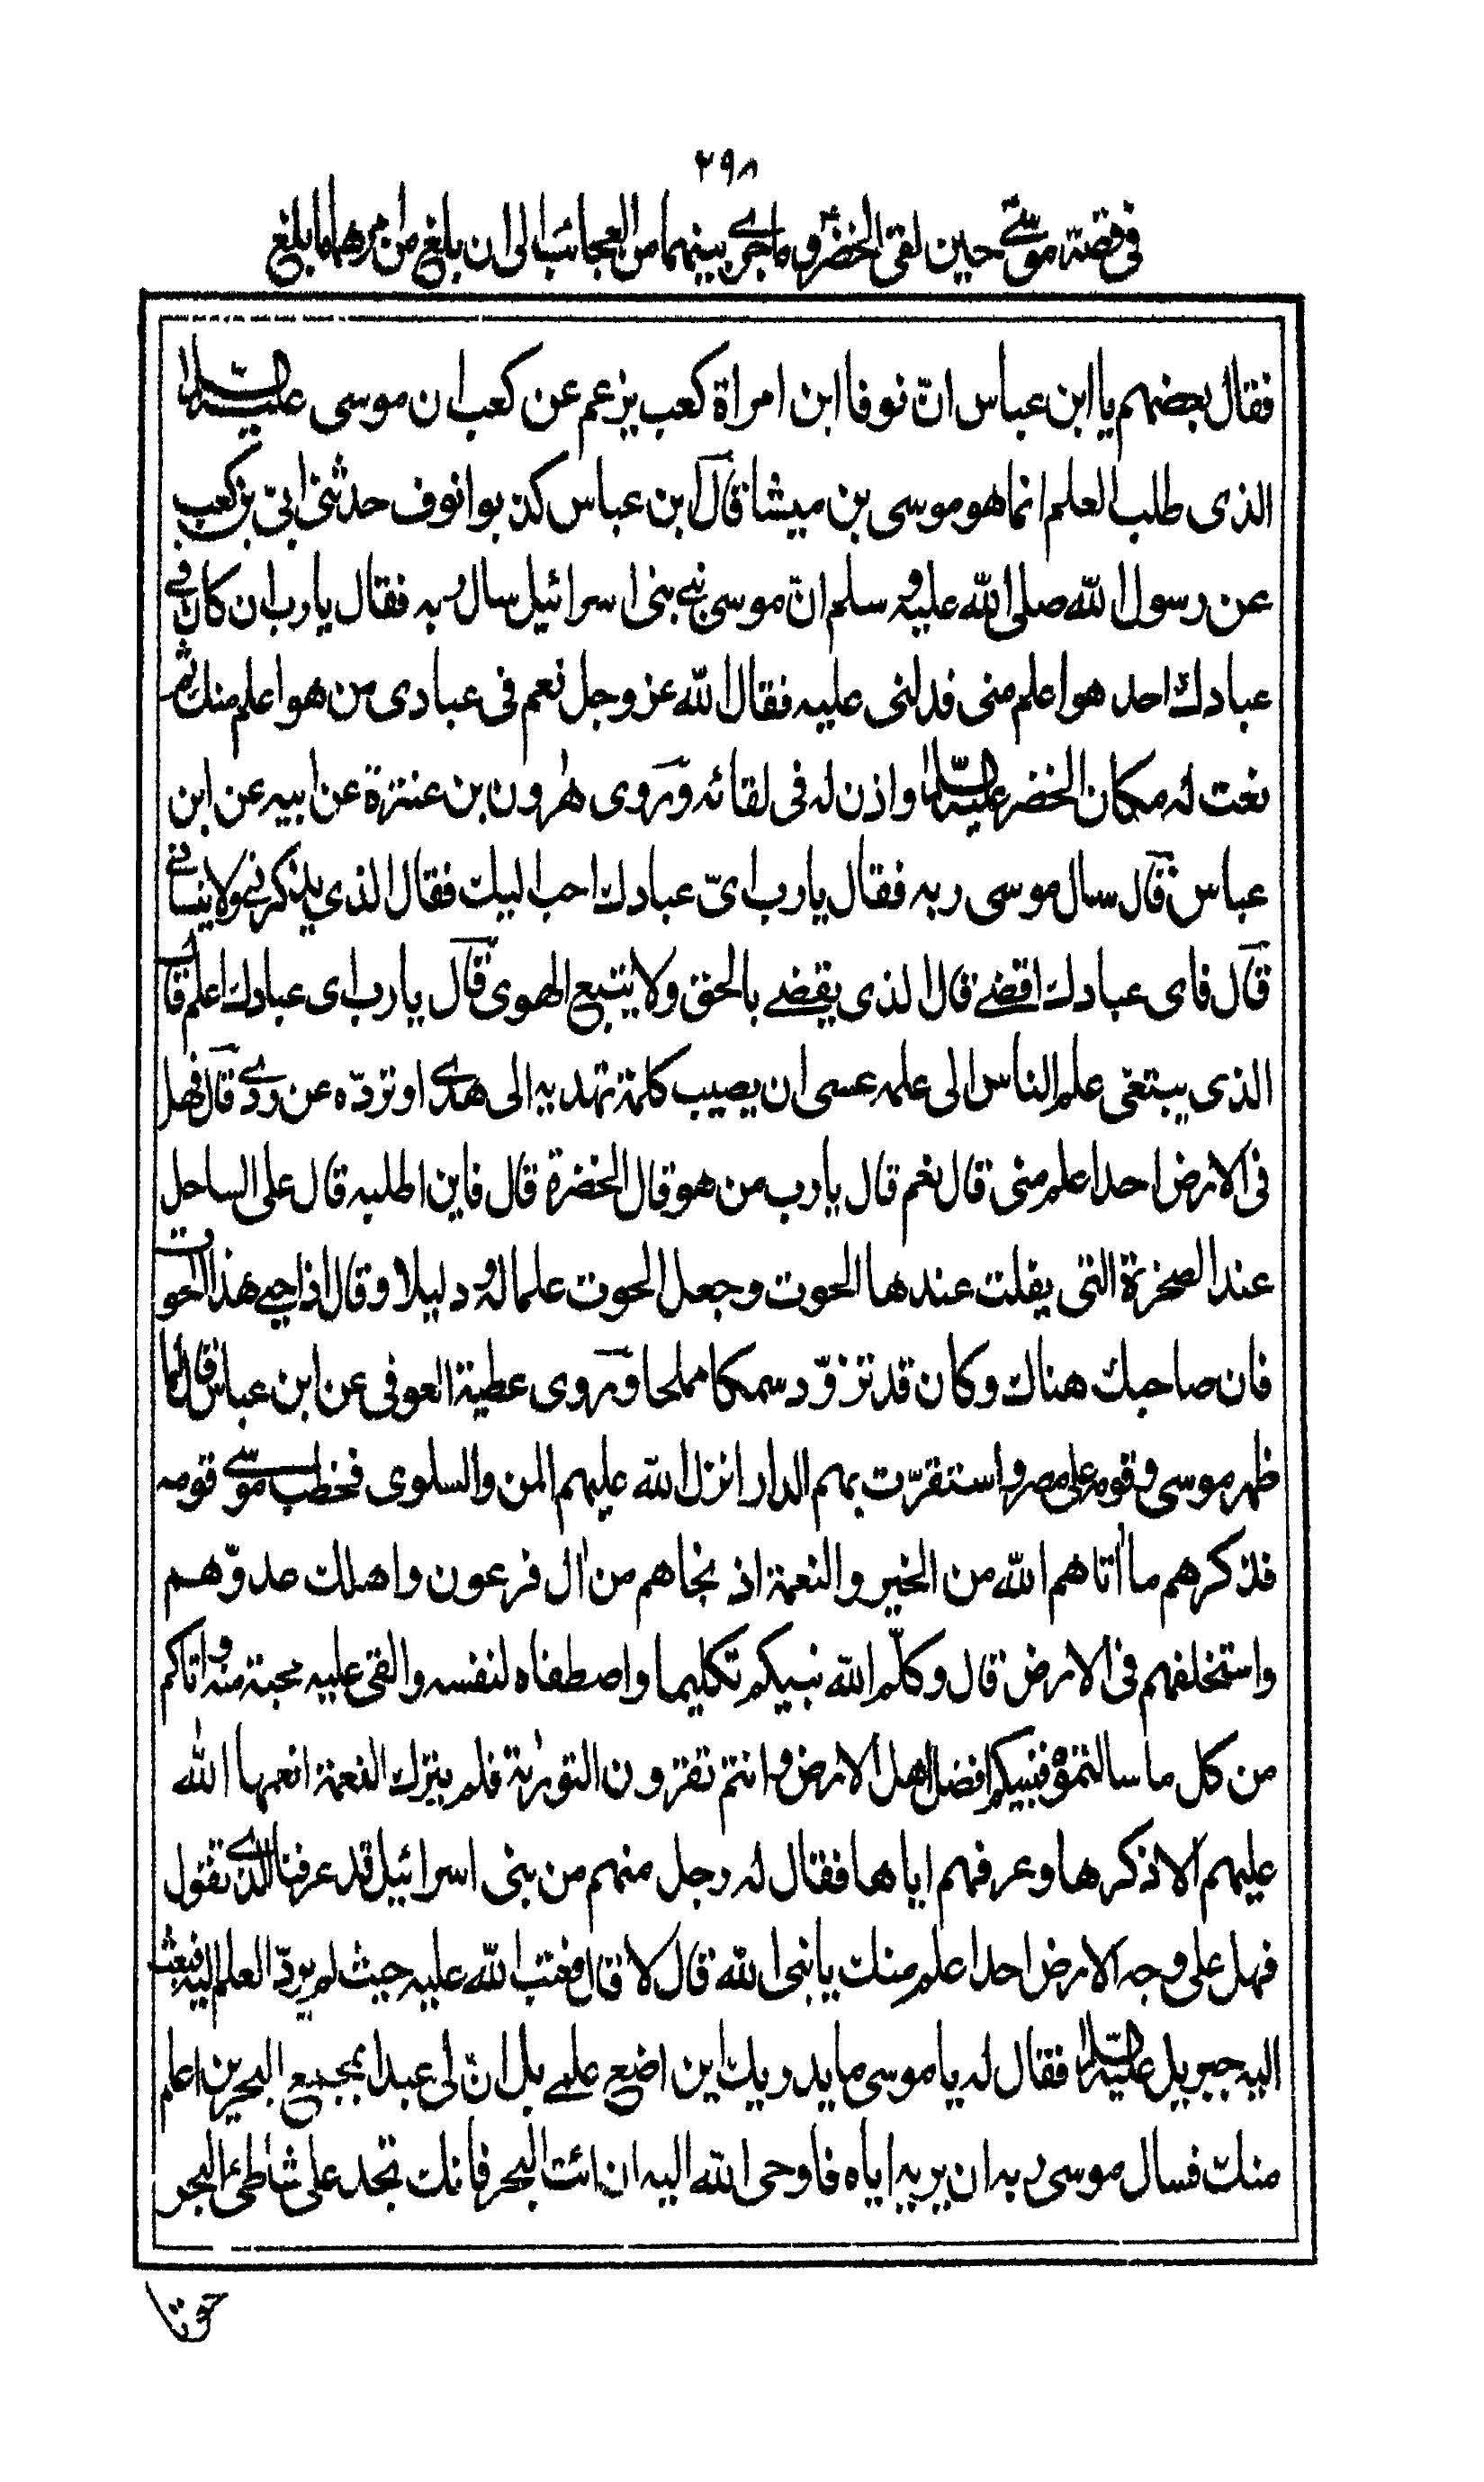 ٢٩٨
فى قصة موسىٰ حين لقى الخضرؑ وما جرى بينهما من العجائب الى ان بلغ من امرهما ما بلغ
فقال بعضهم يا ابن عباس انّ نوفا ابن امراة كعب يزعم عن كعب ان موسى عليه السلام
الذى طلب العلم انما هو موسى بن ميشا قال ابن عباس كذبوا نوف حدثنى ابىّ بن كعب
عن رسول الله صلى الله عليه وسلم انّ موسى نبى بنى اسرائيل سال ربه فقال يارب ان كان فى
عبادك احد هو اعلم منى فدلنى عليه فقال الله عز وجل نعم فى عبادى من هو اعلم منك ثم
نعت له مكان الخضر عليه السلام واذن له فى لقائه وروى هٰرون بن عنترة عن ابيه عن ابن
عباس قال سال موسى ربه فقال يارب اىّ عبادك احب اليك فقال الذى يذكرنى ولا ينسانى
قال فاى عبادك اقضى قال الذى يقضى بالحق ولا يتبع الهوى قال يارب اى عبادك اعلم قال
الذى يبتغى علم الناس الى علمه عسى ان يصيب كلمة تهديه الى هدى او تردّه عن ردى قال فهل
فى الارض احد اعلم منى قال نعم قال يارب من هو قال الخضرة قال فاين اطلبه قال على الساحل
عند الصخرة التى يفلت عندها الحوت وجعل الحوت علما له ودليلا وقال اذا حيى هذا الحوت
فان صاحبك هناك وكان قد تزوّد سمكا مملحا وروى عطية العوفى عن ابن عباس قال لما
ظهر موسى وقومه على مصر واستقرّت بهم الدار انزل الله عليهم المن والسلوى فخطب موسى قومه
فذكرهم ما اٰتاهم الله من الخير والنعمة اذ نجاهم من اٰل فرعون واهلك عدوّهم
واستخلفهم فى الارض قال وكلّم الله نبيكم تكليما واصطفاه لنفسه والقى عليه محبة منه واتاكم
من كل ما سالتموه فنبيكم افضل اهل الارض وانتم تقرؤن التورٰية فلم يترك النعمة انعمها الله
عليهم الا ذكرها وعرفهم اياها فقال له رجل منهم من بنى اسرائيل قد عرفنا الذى تقول
فهل على وجه الارض احد اعلم منك يا نبى الله قال لا قال فعتب الله عليه حيث لم يردّ العلم اليه فبعث
اليه جبريل عليه السلام فقال له يا موسى ما يدريك اين اضع علمى بل انّ لى عبدا بمجمع البحرين اعلم
منك فسال موسى ربه ان يريه اياه فاوحى الله اليه ان ائت البحر فانك تجد على شاطئ البحر
حوتا